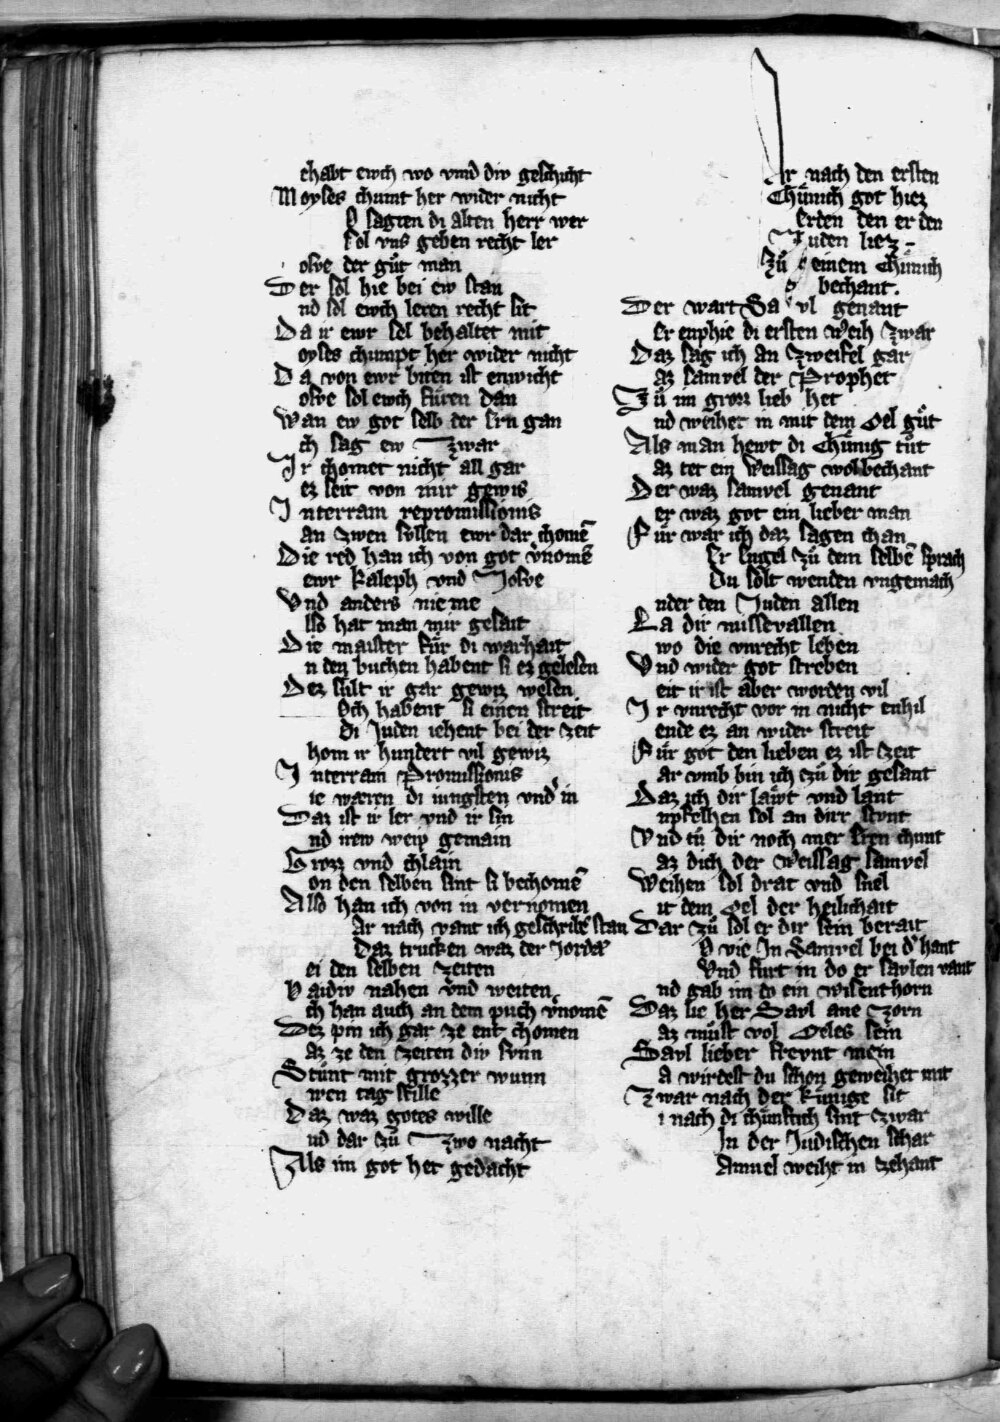 ehabt ewch wo vnd div geschicht
Moyses chumt her wider nicht
O sagten di alten herr wer
Sol vns geben recht ler
osve der gůt man
Der sol hie bei ew stan
nd sol ewch leren recht sit
Da ir ewr sel behaltet mit
oyses chumpt her wider nicht
Da von ewr biten ist enwicht
osve sol ewch fůren dan
Wan ew got selb der sin gan
ch sag ew Tzwar
Ir chomet nicht all gar
ez seit von mir gewis
Interram repromissionis
an zwen sullen ewr dar chomē
Die red han ich von got v̾nomē
ewr Kaleph vnd Josve
Vnd anders nieme
lso hat man mir gesait
Die maister fůr di warhait
n den buchen habent si ez gelesen
Dez sult ir gar gewiz wesen
Och habent si einen streit
Di Juden iehent bei der zeit
hom ir hundert vil gewiz
Interram Promissionis
ie wæren di iungsten vnd in
Daz ist ir ler vnd ir sin
nd irew weip gemain
Grozz vnd chlain
on den selben sint si bechomē
Also han ich von in vernomen
Ar nach vant ich geschribē stan
Daz trucken waz der Jordā
ei den selben zeiten
Vaidiv nahen vnd weiten
ch han auch an dem puch v̾nomē
Dez pin ich gar ze ent chomen
az ze den zeiten div sunn
Stůnt mit grozzer wunn
wen tag stille
Daz waz gotes wille
nd dar zů Tzwo nacht
Als im got het gedacht
Ar nach den ersten
Chůnich got hiez
Erden den er den
Juden liez
Zů einem Chůnich
bechant.
Der wart Savl genant
Er enphie di ersten weih zwar
Daz sag ich an zweifel gar
az samvel der Prophet
Zů im grozz lieb het
nd weihet in mit dem Oel gůt
Als man hewt di Chůnig tůt
az tet ein weissag wolbechant
Der waz samvel genant
er waz got ein lieber man
Fůr war ich daz sagen chan
Er Engel zů dem selbē sprach
Du solt wenden vngemach
nder den Juden allen
La dir missevallen
wo die vnrecht leben
Vnd wider got streben
eit ir ist aber worden vil
Ir vnrecht vor in nicht enhil
ende ez an wider streit
Fůr got den lieben ez ist zeit
ar vmb bin ich czů dir gesant
Daz ich dir lawt vnd lant
npfelhen sol an dirr stvnt
Vnd tů dir noch mer sten chunt
az dich der weissag samvel
Weihen sol drat vnd snel
it dem Oel der heilichait
Dar zů sol er dir sein berait
O vie in Samvel bei d̾ hant
Vnd furt in do er savlen vant
nd gab im do ein wisenthorn
Daz lie her Savl ane zorn
az můst vol Oeles sein
Savl lieber frevnt mein
a wirdest du schon geweihet mit
Zwar nach der kůnige sit
i nach di chůnftich sint zwar
In der Judischen schar
Amuel weiht in zehant